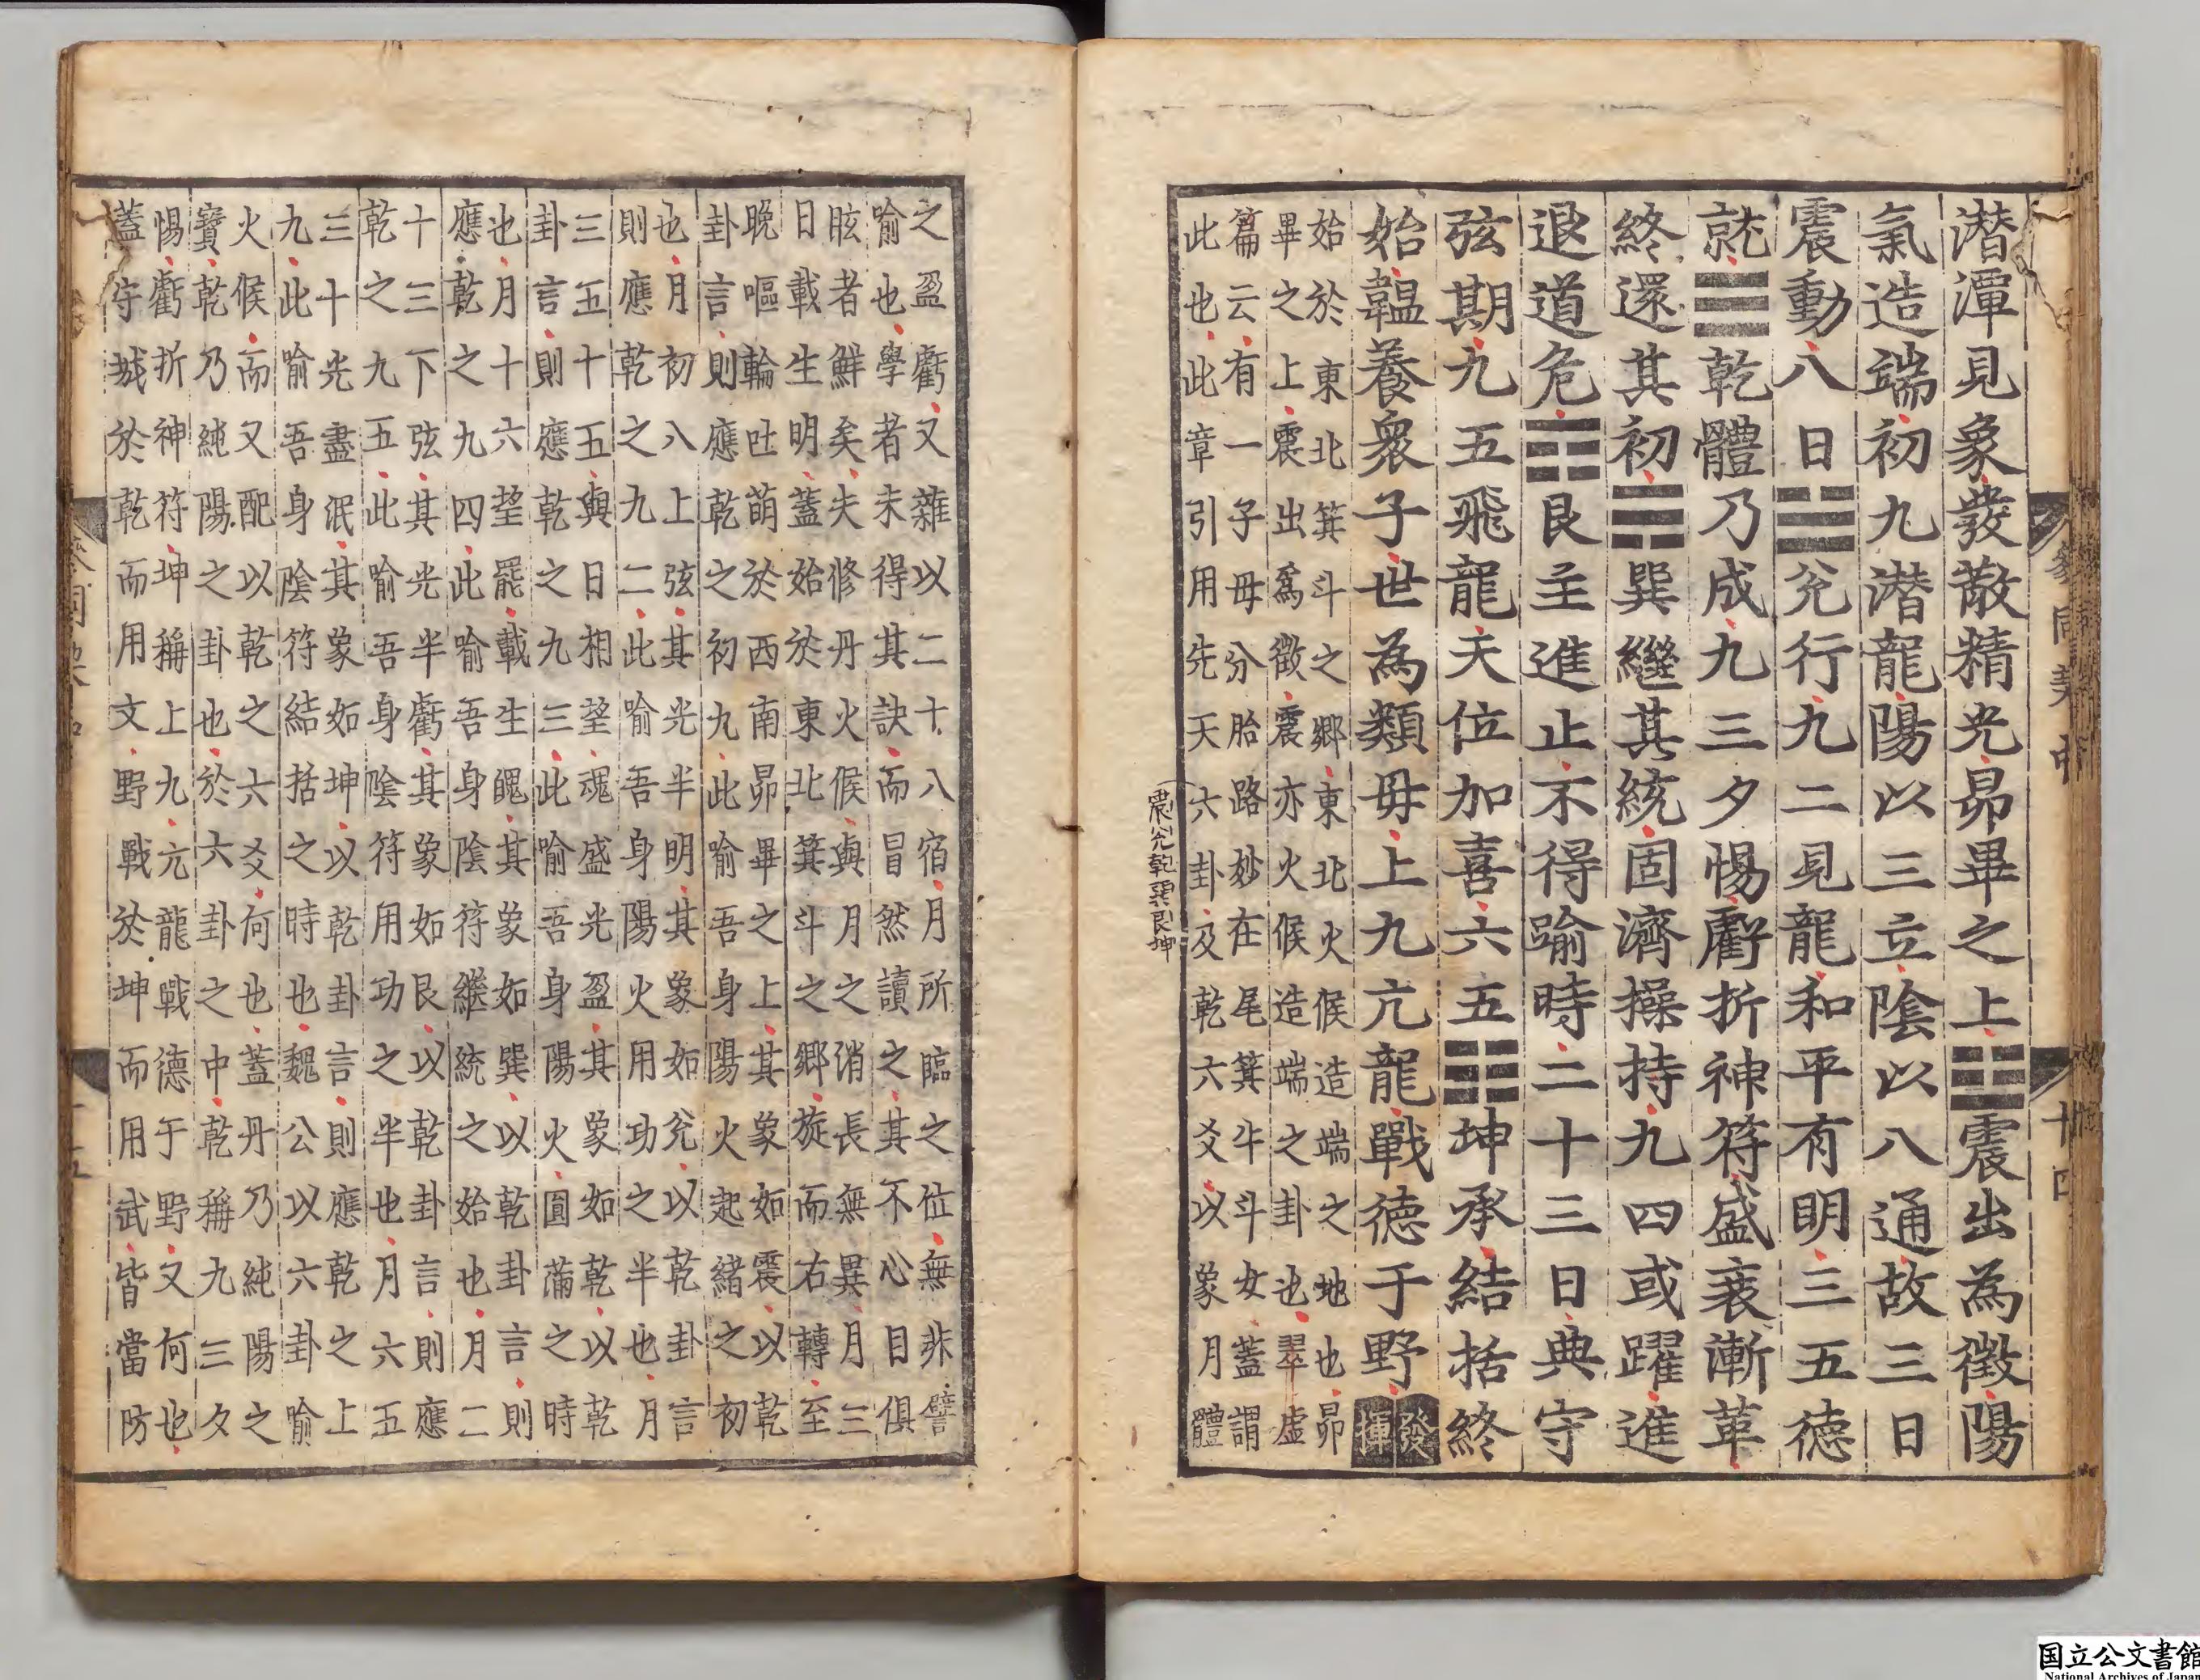 潛潭見象發散精光昴畢之上☳震出為徵陽
氣造端初九潛龍陽以三立陰以八通故三日
震動八日☱兌行九二見龍和平有明三五德
就☰乾體乃成九三夕惕虧折神符盛衰漸革
終還其初☴巽繼其統固濟操持九四或躍進
退道危☶艮主進止不得踰時二十三日典守
弦期九五飛龍天位加喜六五☷坤承結括終
始韞養衆子世為類母上九亢龍戰德于野發揮
始於東北箕斗之鄉東北火候造端之地也昴
畢之上震出爲徵震亦火候造端之卦也翠虛
篇云有一子母分胎路妙在尾箕牛斗女蓋謂
此也此章引用先天六卦及乾六爻以象月體
震兌乾巽艮坤
之盈虧又雜以二十八宿月所臨之位無非譬
喻也學者未得其訣而冒然讀之其不心目俱
眩者鮮矣夫修丹火候與月之消長無異月三
日載生明蓋始於東北箕斗之鄉旋而右轉至
晚嘔輪吐萌於西南昴畢之上其象如震以乾
卦言則應乾之初九此喻吾身陽火起緒之初
也月初八上弦其光半明其象如兌以乾卦言
則應乾之九二此喻吾身陽火用功之半也月
三五十五與日相望魂盛光盈其象如乾以乾
卦言則應乾之九三此喻吾身陽火圓滿之時
也月十六望罷載生魄其象如巽以乾卦言則
應乾之九四此喻吾身陰符繼統之始也月二
十三下弦其光半虧其象如艮以乾卦言則應
乾之九五此喻吾身陰符用功之半也月六五
三十光盡泯其象如坤以乾卦言則應乾之上
九此喻吾身陰符結括之時也魏公以六卦喻
火候而又配以乾之六爻何也蓋丹乃純陽之
寶乾乃純陽之卦也於六卦之中乾稱九三夕
惕虧折神符坤稱上九亢龍戰德于野又何也
蓋守城於乾而用文野戰於坤而用武皆當防
參同契中
十四
国立公文書館
National Archives of Japan